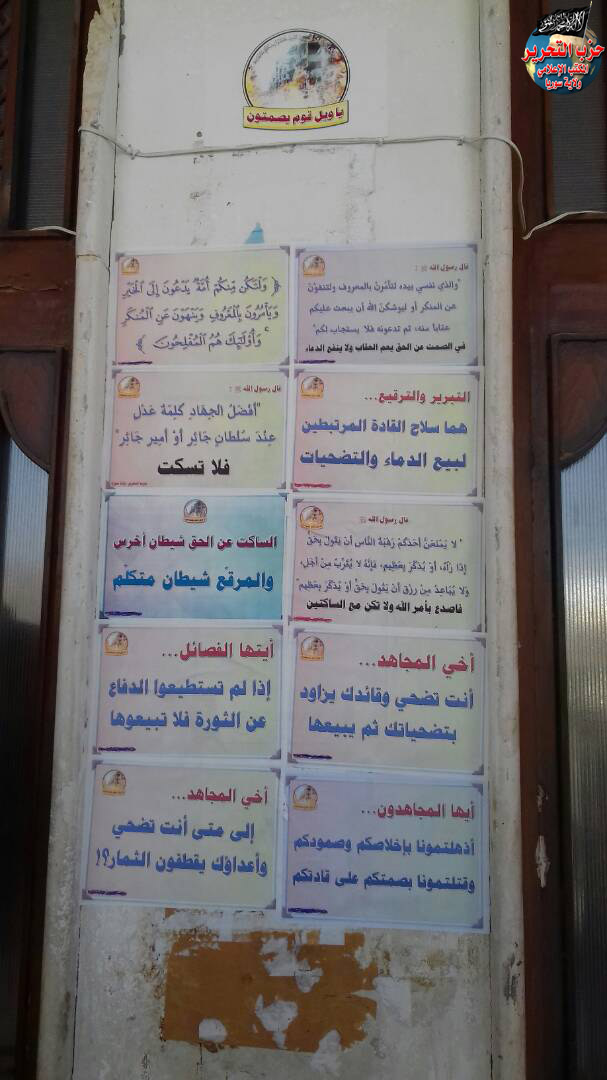 حزب التحرير
المكتب الإعلامي
ولاية سوريا
يا ويل قوم يصمتون
قال رسول الله ﷺ :
"والذي نفسي بيده لتأمرن بالمعروف ولتنهون
عن المنكر أو ليوشكن الله أن يبعث عليكم
عقابا منه، ثم تدعونه فلا يستجاب لكم"
في الصمت عن الحق يعم العقاب ولا ينفع الدعاء
﴿ وَلْتَكُن مِّنكُمْ أُمَّةٌ يَدْعُونَ إِلَى الْخَيْرِ
وَيَأْمُرُونَ بِالْمَعْرُوفِ وَيَنْهَوْنَ عَنِ الْمُنكَرِ
ۚ وَأُوْلَٰٓئِكَ هُمُ الْمُفْلِحُونَ ﴾
التبرير والترقيع...
هما سلاح القادة المرتبطين
لبيع الدماء والتضحيات
قال رسول الله ﷺ :
"أَفْضَلُ الجِهَادِ كَلِمَةُ عَدْلٍ
عِنْدَ سُلْطَانٍ جَائِرٍ أَوْ أَمِيرٍ جَائِرٍ"
فلا تسكت
قال رسول الله ﷺ
" لا يَمْنَعَنَّ أَحَدَكُمْ رَهْبَةُ النَّاسِ أَنْ يَقُولَ بِحَقٍّ
إِذَا رَآهُ، أَوْ يُذَكِّرَ بِعَظِيمٍ، فَإِنَّهُ لا يُقَرِّبُ مِنْ أَجَلٍ،
وَلا يُبَاعِدُ مِنْ رِزْقٍ أَنْ يَقُولَ بِحَقٍّ أَوْ يُذَكِّرَ بِعَظِيمٍ"
فاصدع بأمر الله ولا تكن مع الساكتين
الساكت عن الحق شيطان أخرس
والمرقّع شيطان متكلّم
أخي المجاهد...
أنت تضحي وقائدك يزاود
بتضحياتك ثم يبيعها
أيتها الفصائل...
إذا لم تستطيعوا الدفاع
عن الثورة فلا تبيعوها
أيها المجاهدون...
أذهلتمونا بإخلاصكم وصمودكم
وقتلتمونا بصمتكم على قادتكم
أخي المجاهد...
إلى متى أنت تضحي
وأعداؤك يقطفون الثمار؟!